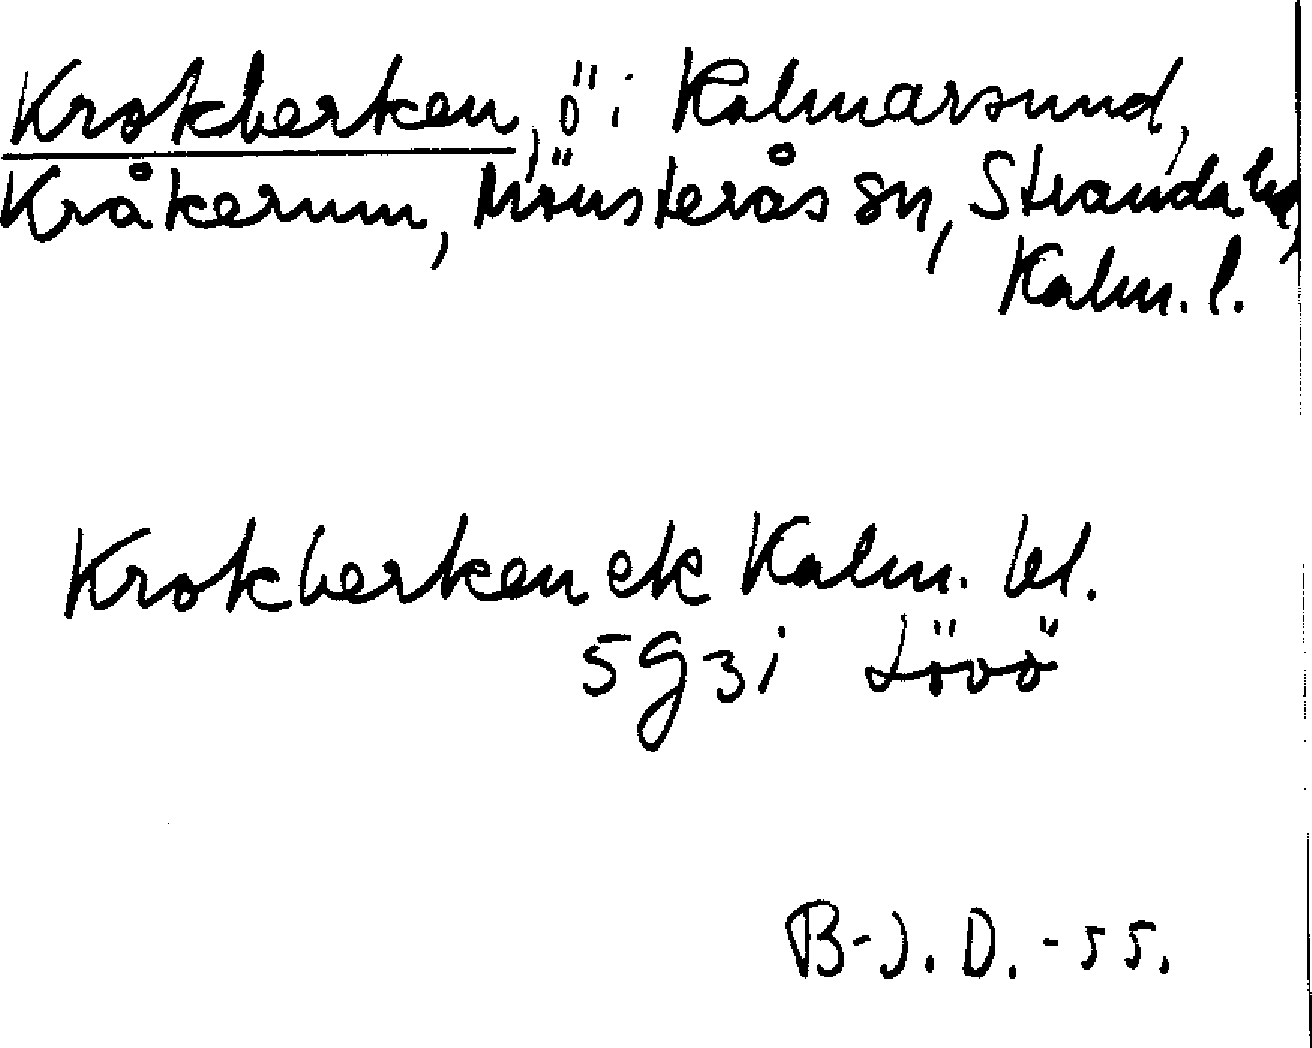 Krokberken, ö i Kalmarsund,
Kråkerum, Mönsterås sn, Stranda hd,
Kalm. l.
Krokberken ek Kalm. bl.
5 g 3 i Lövö
B-J. D. -55.